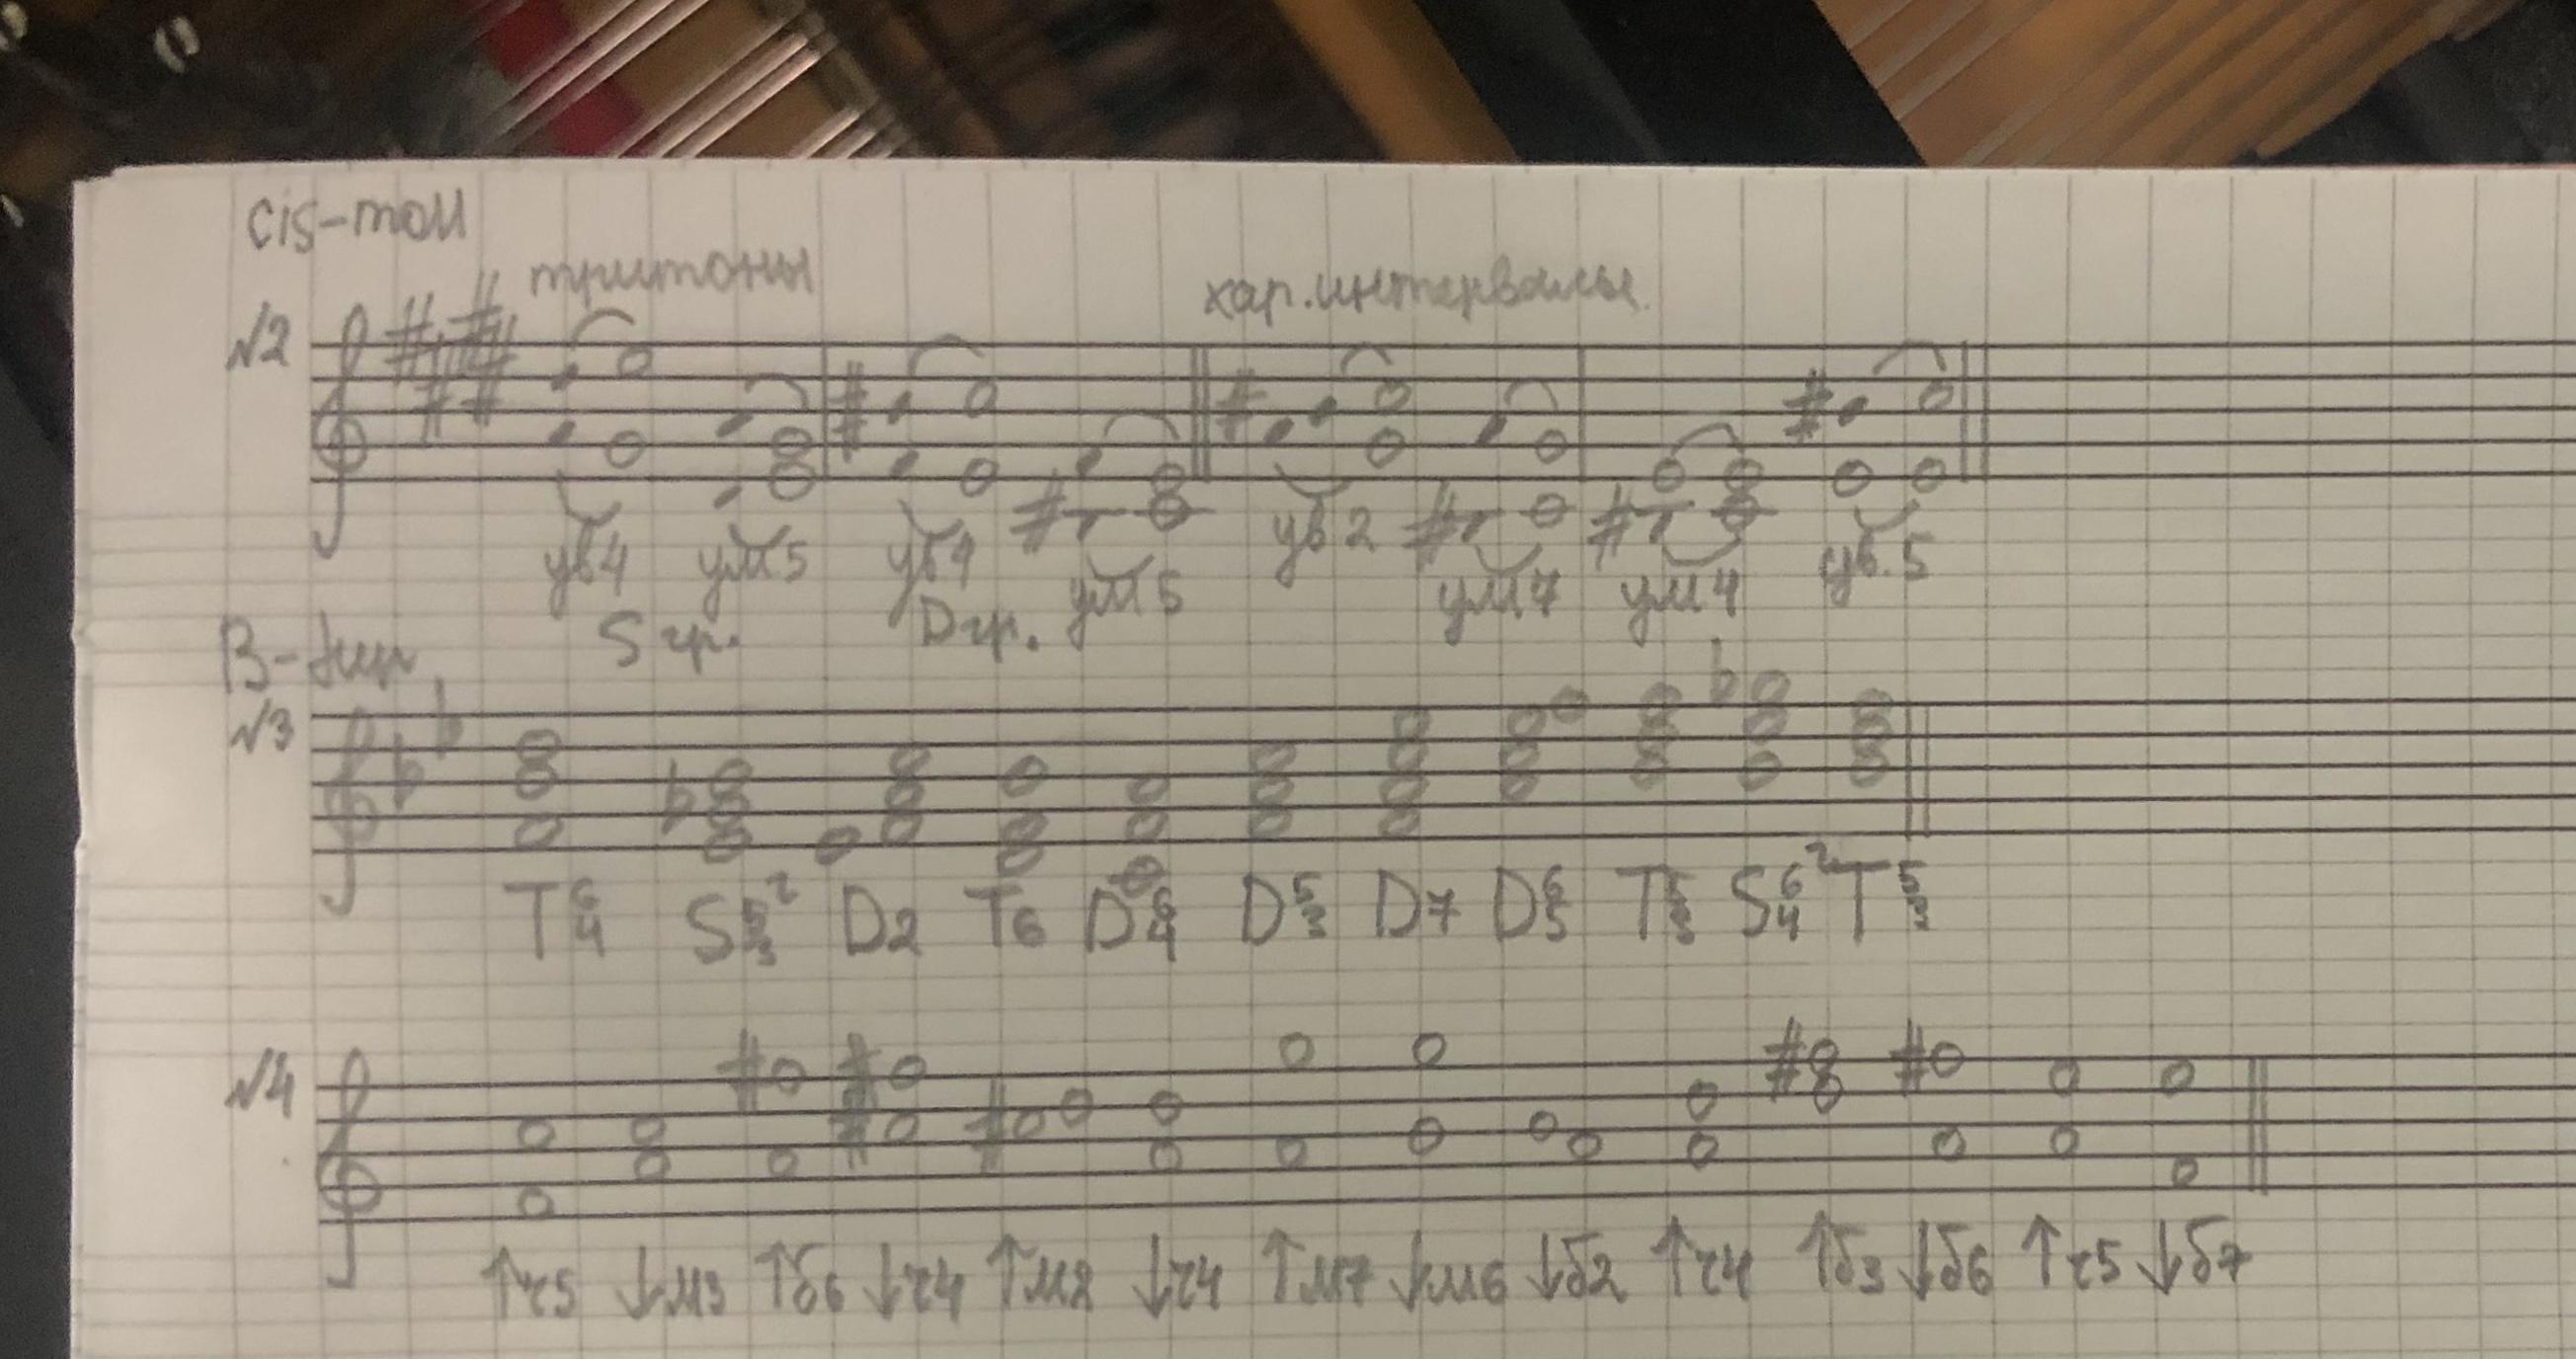 cis-moll
тритоны
хар. интервалы
№2
ув4 ум5 ув4 ум5 ув2 ум7 ум4 ув.5
S гр. D гр.
B-dur
№3
T6/4 S5/3г D2 T6 D6/4 D5/3 D7 D6/5 T5/3 S6/4г T5/3
№4
↑ч5 ↓м3 ↑б6 ↓ч4 ↑м2 ↓ч4 ↑м7 ↓м6 ↓б2 ↑ч4 ↑б3 ↓б6 ↑ч5 ↓б7